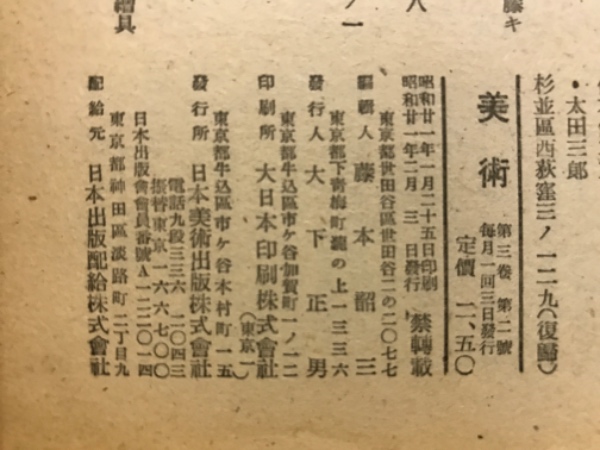 ・太田三郎
杉並區西荻窪三ノ一二九(復歸)
美術
第三卷 第二號
每月一回三日發行
定價 二、五〇
昭和廿一年一月二十五日印刷
昭和廿一年二月 三 日發行
禁轉載
東京都世田谷區世田谷二の二〇七七
編輯人 藤本韶三
東京都下靑梅町瀧の上一三三六
發行人 大下正男
東京都牛込區市ケ谷加賀町一ノ一二
印刷所 大日本印刷株式會社
(東京一)
東京都牛込區市ケ谷本村町一五
發行所 日本美術出版株式會社
電話九段三三六一二〇四三
振替東京一六六七〇〇
日本出版會會員番號A一二二〇一四
東京都神田區淡路町二丁目九
配給元 日本出版配給株式會社
繪具
ノ一
八
藤キ